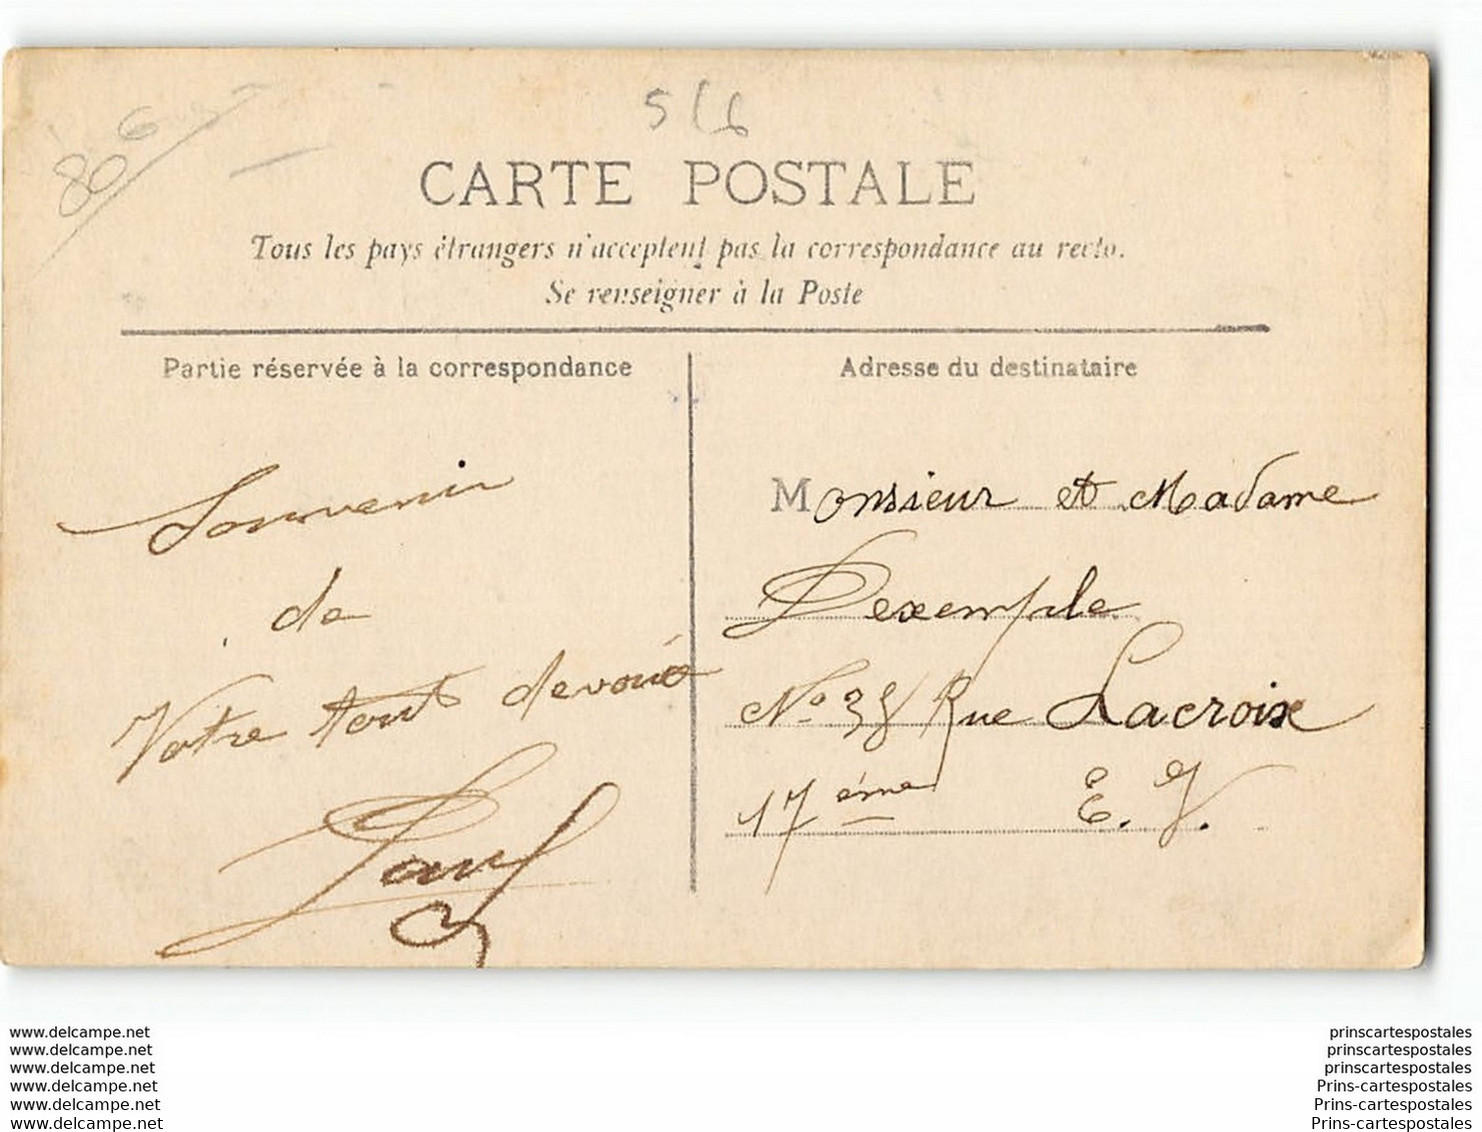 516
80
6
CARTE POSTALE
Tous les pays étrangers n'acceptent pas la correspondance au recto.
Se renseigner à la Poste
Partie réservée à la correspondance
Souvenir
de
Votre tout devoué
Paul
Adresse du destinataire
Monsieur et Madame
Dexemple
No 38 Rue Lacroix
17ème E. V.
www.delcampe.net
www.delcampe.net
www.delcampe.net
www.delcampe.net
www.delcampe.net
www.delcampe.net
prinscartespostales
prinscartespostales
prinscartespostales
Prins-cartespostales
Prins-cartespostales
Prins-cartespostales